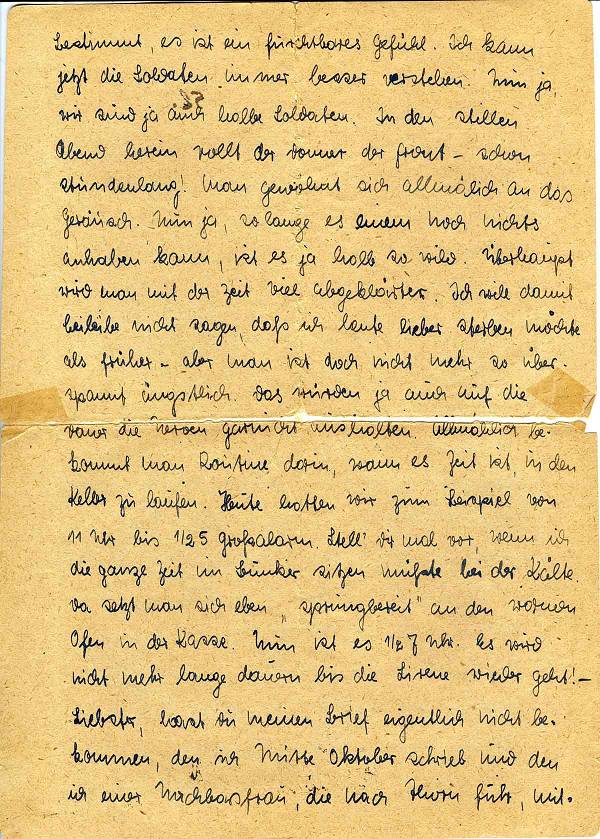 bestimmt, es ist ein furchtbares Gefühl. Ich kann
jetzt die Soldaten immer besser verstehen. Nun ja,
wir sind ja auch halbe Soldaten. In den stillen
Abend herein rollt der Donner der Front – schon
stundenlang! Man gewöhnt sich allmälich an das
Geräusch. Nun ja, solange es einem noch nichts
anhaben kann, ist es ja halb so wild. Überhaupt
wird man mit der Zeit viel abgeklärter. Ich will damit
beileibe nicht sagen, daß ich heute lieber sterben möchte
als früher – aber man ist doch nicht mehr so über-
spannt ängstlich. Das würden ja auch auf die
Dauer die Nerven garnicht aushalten. Allmählich be-
kommt man Routine darin, wann es Zeit ist, in den
Keller zu laufen. Heute hatten wir zum Beispiel von
11 Uhr bis 1/2 5 Großalarm. Stell' dir mal vor, wenn ich
die ganze Zeit im Bunker sitzen müßte bei der Kälte.
Da setzt man sich eben „sprungbereit" an den warmen
Ofen in der Kasse. Nun ist es 1/2 7 Uhr. Es wird
nicht mehr lange dauern bis die Sirene wieder geht! –
Liebster, hast du meinen Brief eigentlich nicht be-
kommen, den ich Mitte Oktober schrieb und den
ich einer Nachbarsfrau, die nach Thorn fuhr, mit-